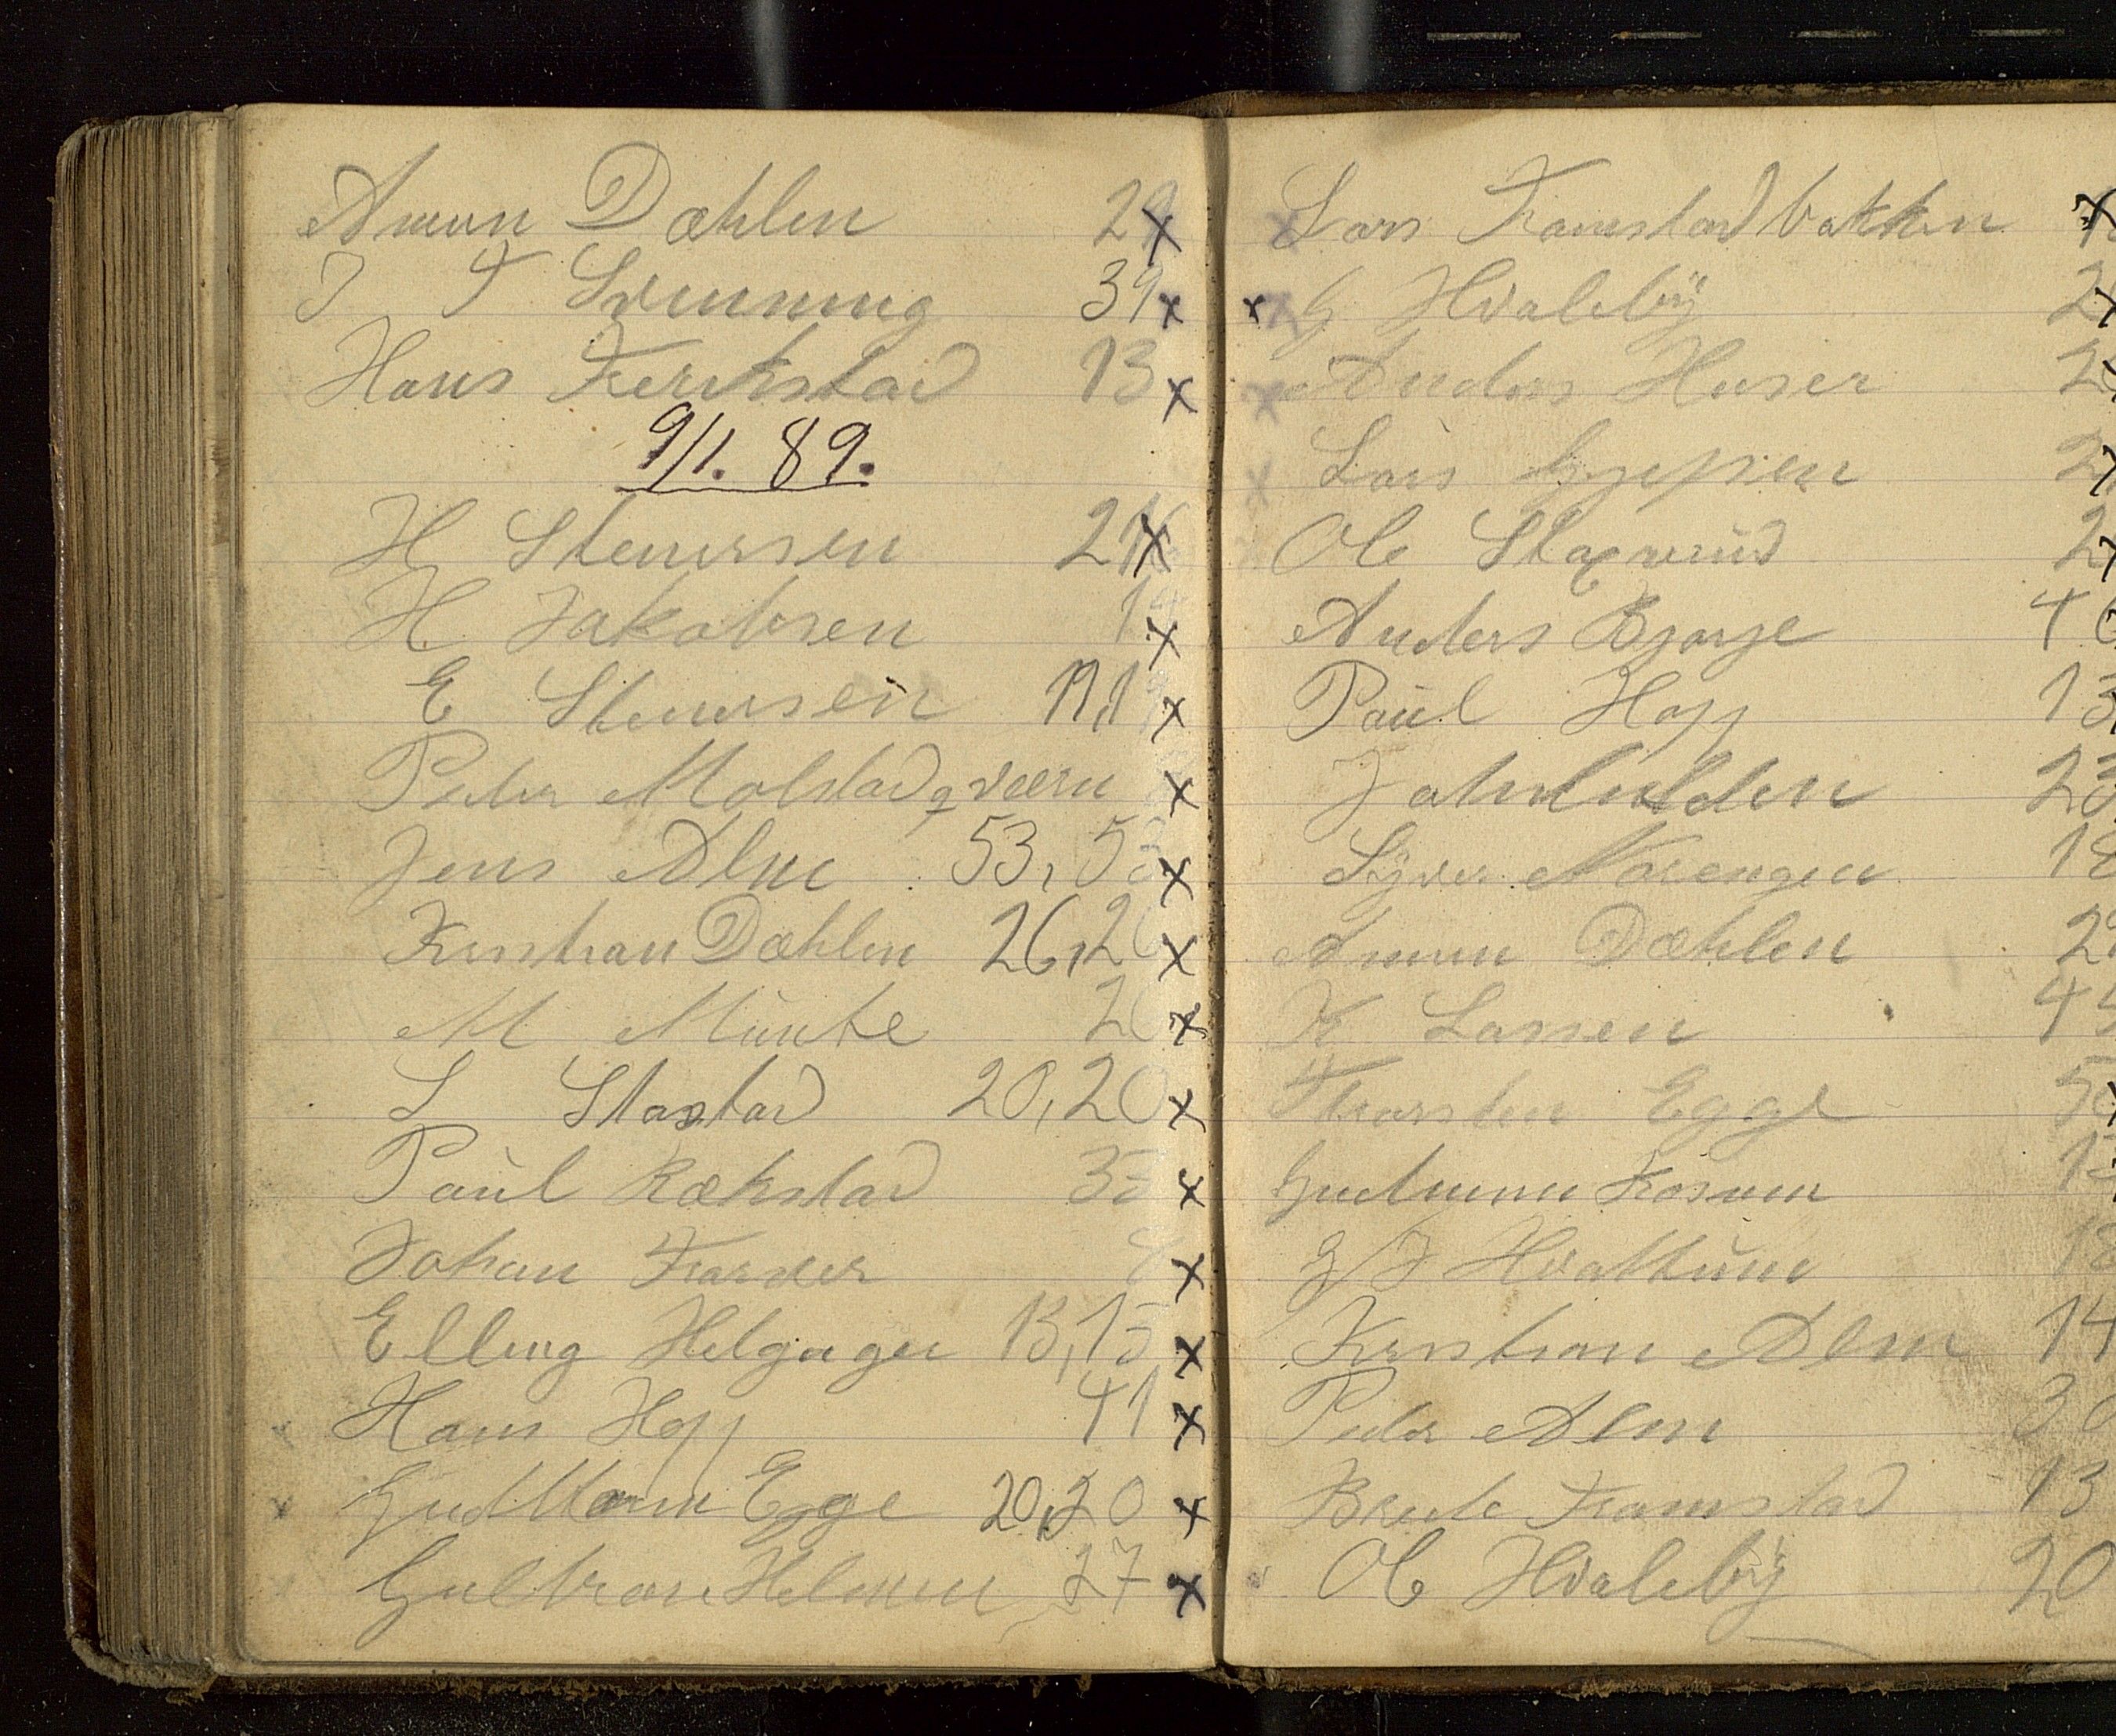 Amun Dæhlen 2
J F Svenning 39 x
Hans Kerkstad 13 x
9/1. 89.
H Stenersen 2 x
H Jakobsen 1 x
E Stenersen 11,1 x
Peder Molstadqværn x
Jens Alm 53,53 x
Kristian Dæhlen 26,26 x
M Münte 20 x
S Stastad 20,20 x
Paul Rækstad 35 x
Johan Farver x
Elling Helgager 13,13 x
Hans Hopp 41 x
Gudbran Egge 20,20 x
Gulbran Helmen 27 x
Lars Framstadbakken
x G Hvaleby 2
Anders Huser 2
Lars 2
Ole Staxerud 2
Anders Bjørge 46
Paul Hopp 13
Johnhilden 23
Syver Norengen 18
Amun Dæhlen 2
K Larsen 4
Thorsten Egge 5
Gudmun Kosum 1
G J Hvattum 18
Kristian Alm 14
Peder Alm 30
Brede Framstad 13
Ole Hvaleby 20